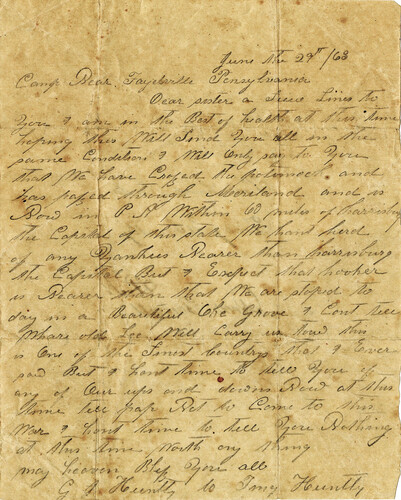 June the 29th /63
Camp Near Fayetville Pensylvania
Dear sister a few Lines to
You I am in the Best of health at this time
hoping this Will find You all in the
same Condition I Will Only say to You
that We have Crosed the potomock and
has pased through Moriland and is
Now in P A Within 60 miles of harrisburg
the Capital of this state We hant herd
of any Yankees Nearer than harrisburg
the Capital But I Exspect that hooker
is Nearer than that We are stoped to
day in a Beautiful Oke Grove I Cont tell
Whare old Lee Will Carry us to this
is One of the finest Countrys that I Ever
saw But I hant time to tell You if
any of Our ups and downs Now at this
time tell pap Not to Come to this
War I hant time to tell You Nothing
at this time Worth any thing
may heaven Bless You all
G Huntly to Huntly